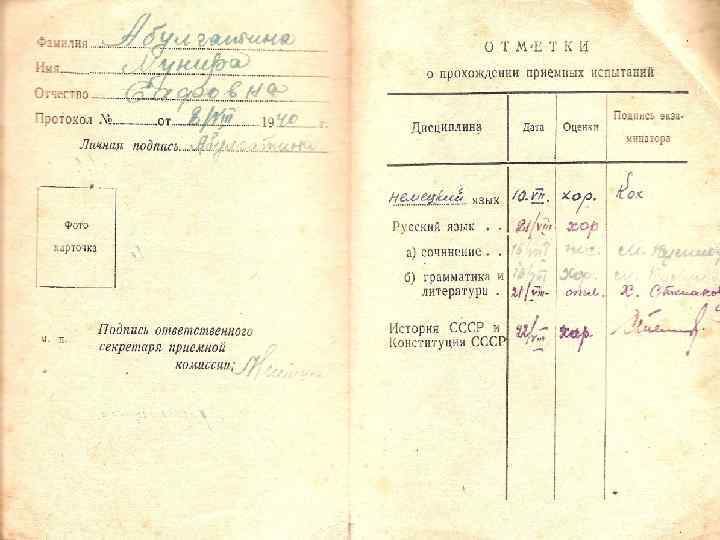 Фамилия Абулгатина
Имя Мунира
Отчество
Протокол № от 2/VIII 1940 г.
Личная подпись
Фото
карточка
м. п.
Подпись ответственного
секретаря приемной
комиссии:
ОТМЕТКИ
о прохождении приемных испытаний
Дисциплина Дата Оценки Подпись экзаменатора
немецкий язык 10.VII. хор. Кох
Русский язык . . 21/VIII. хор
а) сочинение . .
б) грамматика и хор.
литература . 21/VIII- отл. Х.
История СССР и 22/VIII хор
Конституция СССР